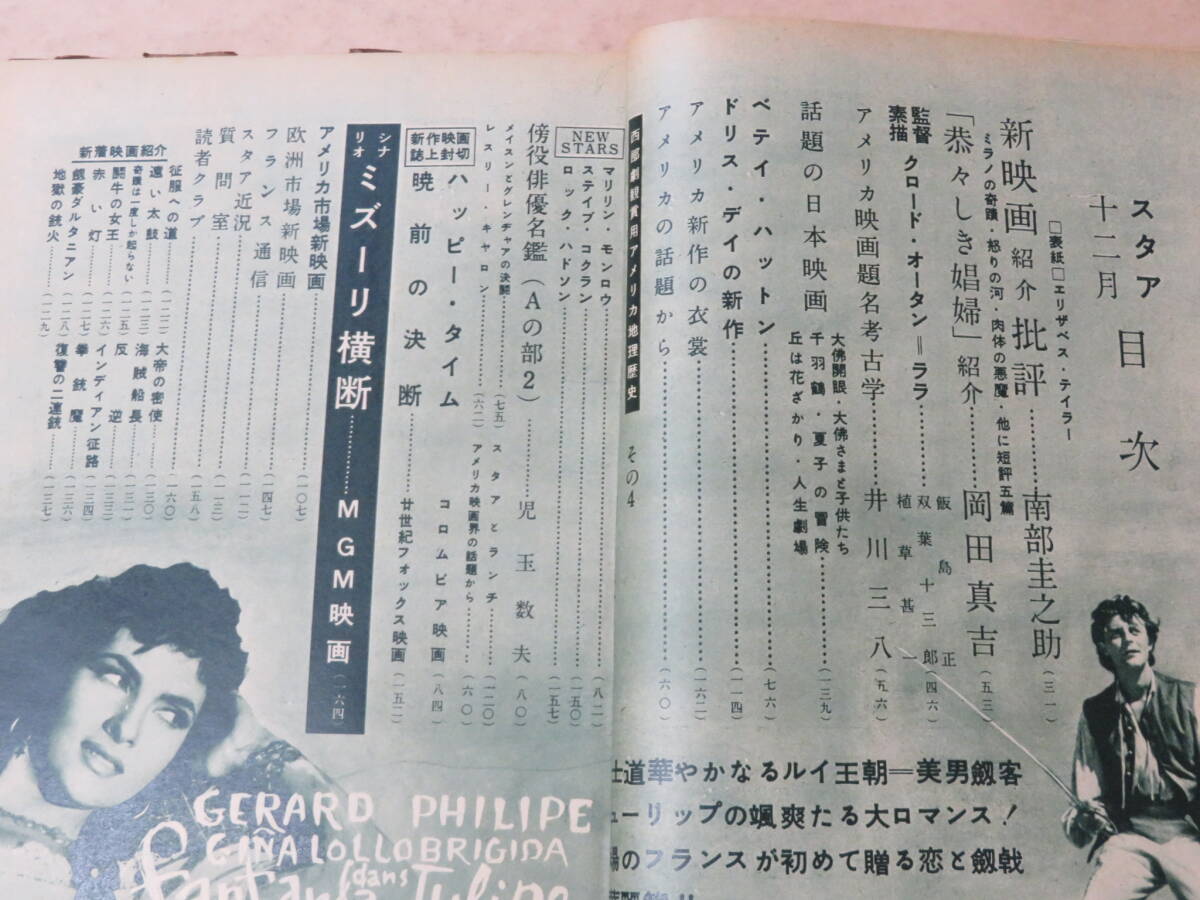 スタア 目次
十二月
□表紙□エリザベス・テイラー
新映画紹介批評……南部圭之助(三一)
ミラノの奇蹟・怒りの河・肉体の悪魔・他に短評五篇
「恭々しき娼婦」紹介……岡田真吉(五三)
監督素描 クロード・オータン=ララ……飯島正 双葉十三郎 植草甚一(四六)
アメリカ映画題名考古学……井川三八(五六)
話題の日本映画 大佛開眼・大佛さまと子供たち 千羽鶴・夏子の冒険 丘は花ざかり・人生劇場……(一三九)
ベティ・ハットン……(七六)
ドリス・デイの新作……(一一四)
アメリカ新作の衣裳……(一六二)
アメリカの話題から……(六〇)
西部劇観賞用アメリカ地理歴史 その4
NEW STARS
マリリン・モンロウ……(八二)
スティブ・コクラン……(一五〇)
ロック・ハドソン……(一五七)
傍役俳優名鑑(Aの部2)……児玉数夫(八〇)
メイスンとグレンヂャアの決闘……(七五)
スタアとランチ……(一二〇)
レスリー・キャロン……(六二)
アメリカ映画界の話題から……(六〇)
新作映画誌上封切
ハッピー・タイム コロムビア映画(八四)
暁前の決断 廿世紀フォックス映画(一五二)
シナリオ ミズーリ横断……MGM映画(一六四)
アメリカ市場新映画……(一〇七)
欧洲市場新映画
フランス通信……(一四七)
スタア近況……(一一二)
質問室……(一一三)
読者クラブ……(一五八)
新着映画紹介
征服への道……(一二二)
大帝の密使……(一六〇)
遠い太鼓……(一二三)
海賊船長……(一三〇)
奇蹟は一度しか起らない……(一二五)
反逆……(一三一)
闘牛の女王……(一二六)
インディアン征路……(一三三)
赤い灯……(一二七)
拳銃魔……(一三四)
劔豪ダルタニアン……(一二八)
復讐の二連銃……(一三六)
地獄の銃火……(一二九)
……(一三七)
士道華やかなるルイ王朝=美男劔客
ューリップの颯爽たる大ロマンス!
のフランスが初めて贈る恋と劔戟
GERARD PHILIPE
GINA LOLLOBRIGIDA
Fanfan
dans
Tulipe